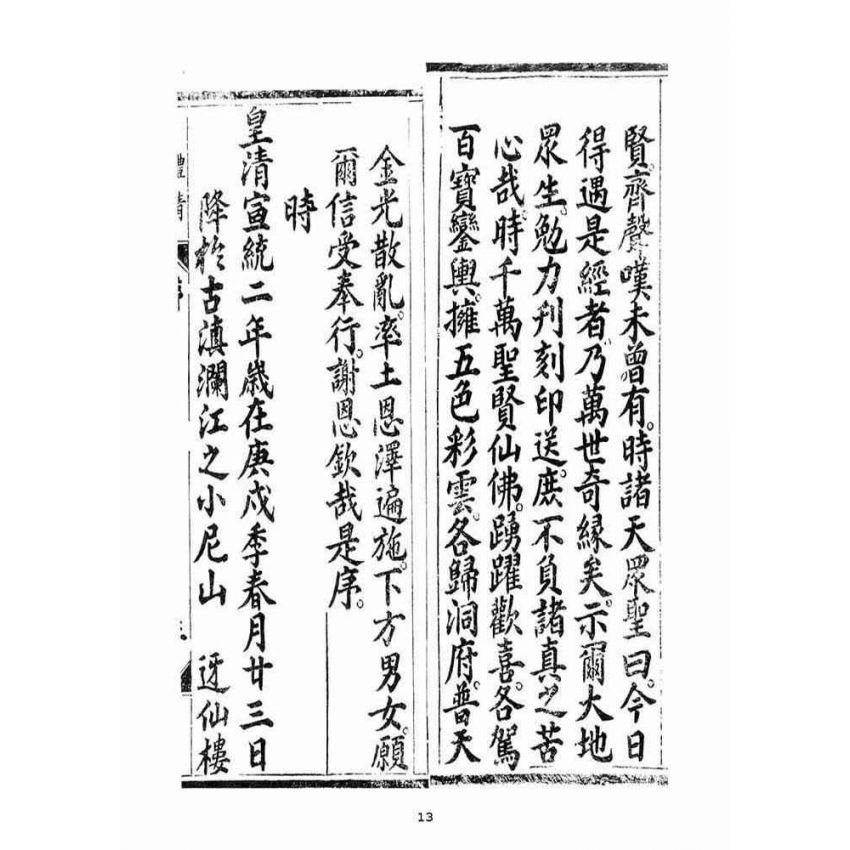 賢。齊聲嘆未曾有。時諸天眾聖曰。今日
得遇是經者。乃萬世奇緣矣。示爾大地
眾生。勉力刋刻印送。庶不負諸真之苦
心哉。時千萬聖賢仙佛。踴躍歡喜。各駕
百寶鑾輿。擁五色彩雲。各歸洞府。普天
金光散亂。率土恩澤遍施。下方男女。願
爾信受奉行。謝恩欽哉是序。
時
皇清宣統二年歲在庚戍季春月廿三日
降於古滇瀾江之小尼山 迓仙樓
序
13